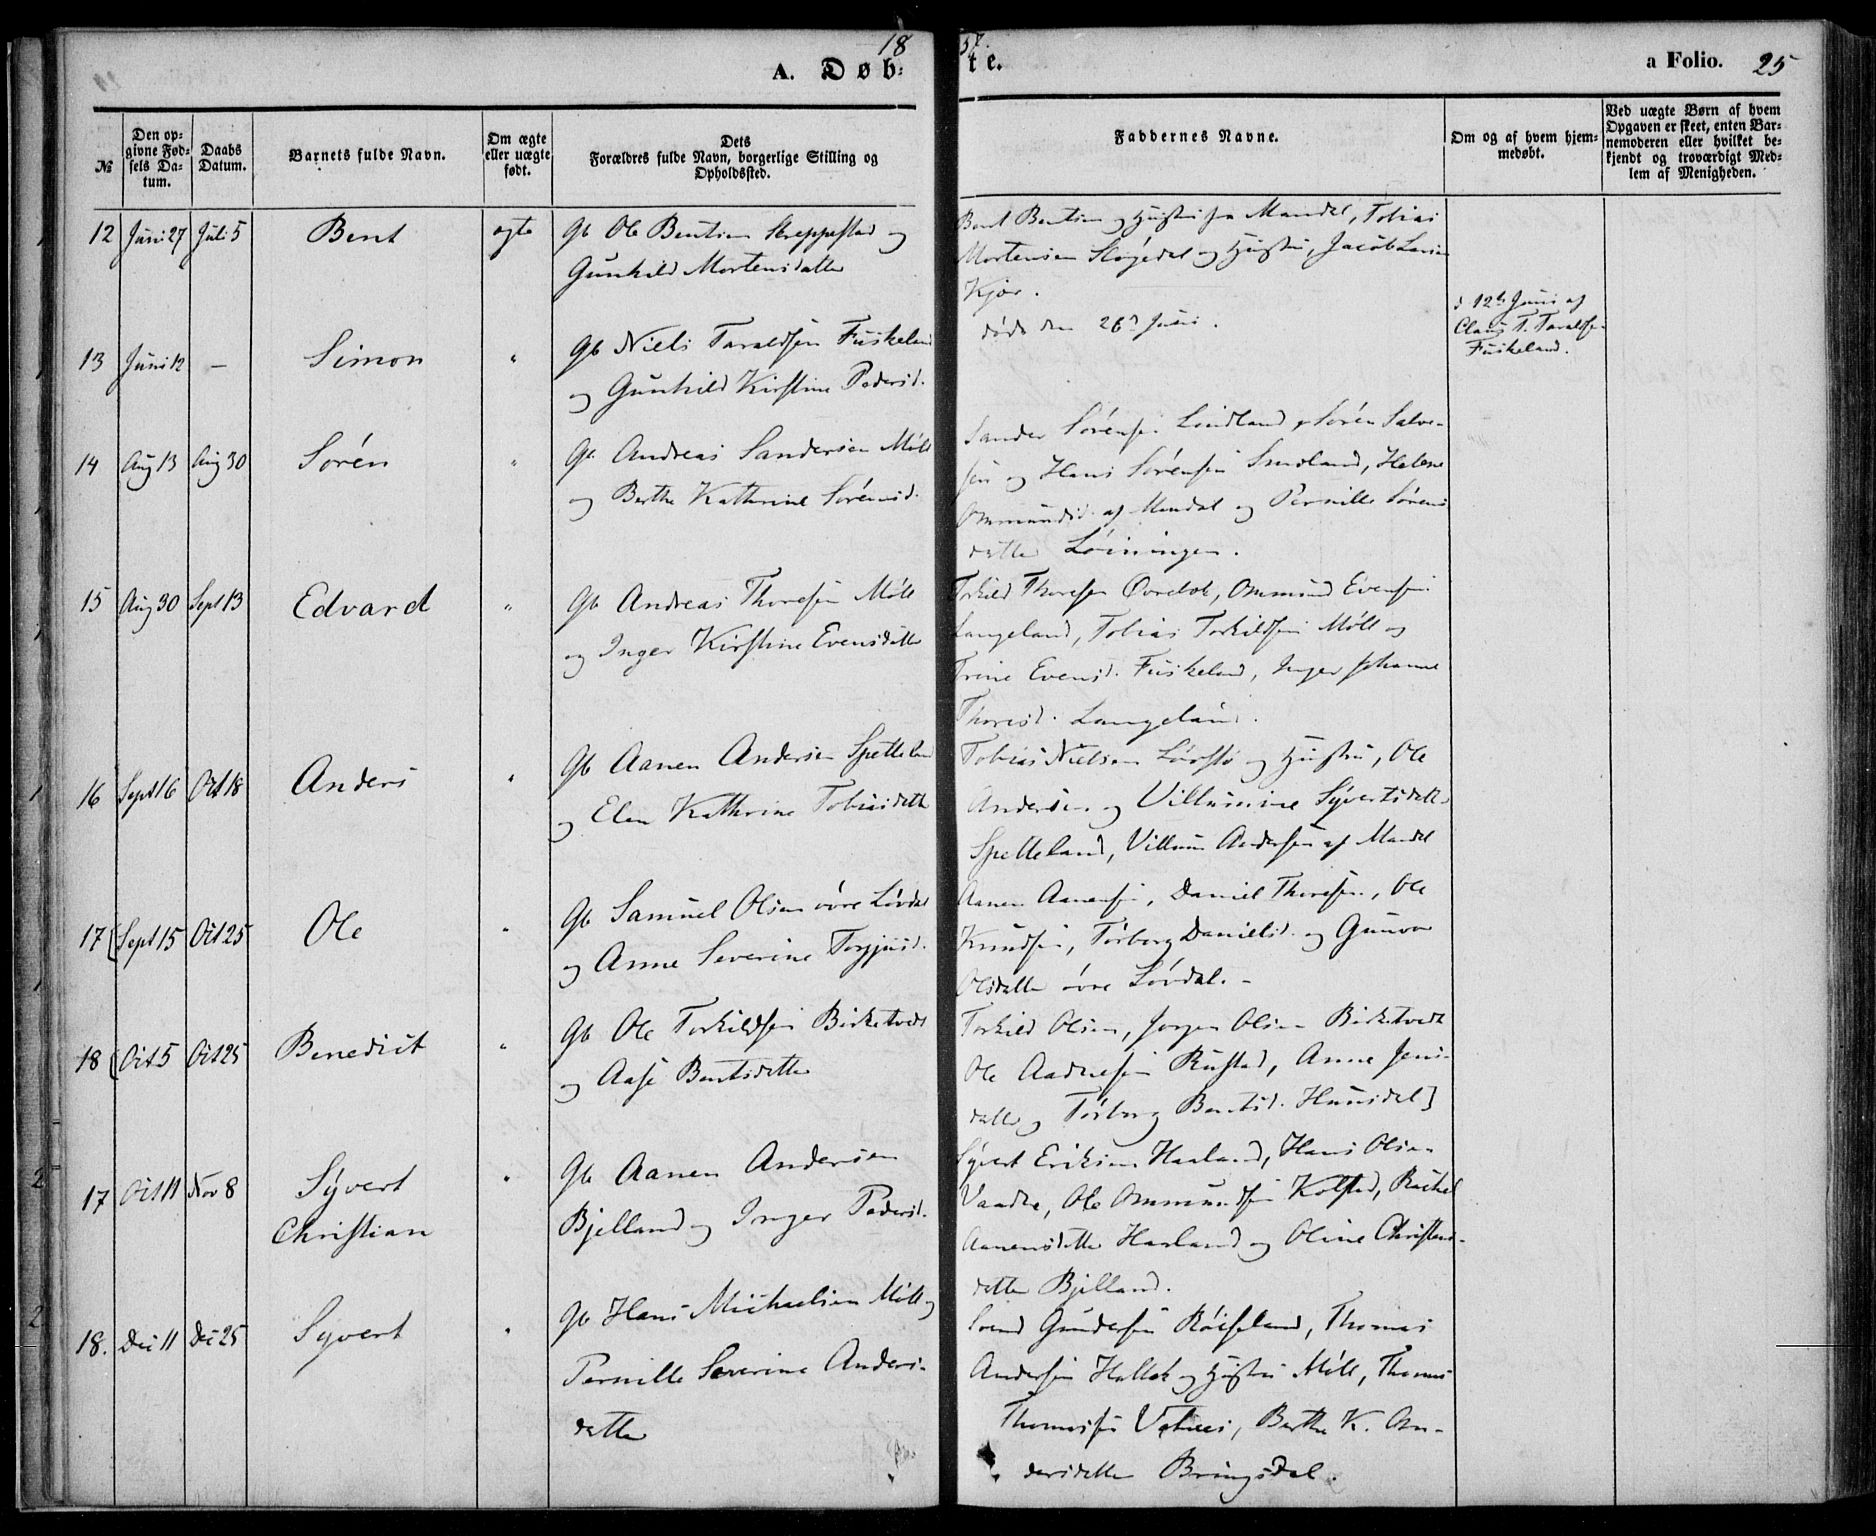 18 57.
A. Døb-te.
a Folio. 25
№
Den op-
givne Fød-
sels Da-
tum.
Daabs
Datum.
Barnets fulde Navn.
Om ægte
eller uægte
født.
Dets
Forældres fulde Navn, borgerlige Stilling og
Opholdssted.
Faddernes Navne.
Om og af hvem hjem-
medøbt.
Ved uægte Børn af hvem
Opgaven er skeet, enten Bar-
nemoderen eller hvilket be-
kjendt og troværdigt Med-
lem af Menigheden.
12 Juni 27 Juli 5 Bent ægte Gb Ole Bentsen og
Gunhild Mortensdatter
Bent Bentsen og Hustru fra Mandal, Tobias
Mortensen og Hustru, Jacob Larsen
Kjær.
13 Juni 12 – Simon " Gb Niels Taraldsen Fuskeland
og Gunhild Kirstine Pedersd.
døde den 26d Juni.
d 12te Juni af
Claus T. Taraldsen
Fuskeland.
14 Aug 13 Aug 30 Sørén " Gb Andreas Sandersen Møll
og Berthe Kathrine Sørensd.
Sander Sørensen Lindland, Søren Salve-
sen og Hans Sørensen Lindland, Helene
Ommundsd. af Mandal og Pernille Sørens
datter Løiningen.
15 Aug 30 Sept 13 Edvard " Gb Andreas Thoresen Møll
og Inger Kirstine Evensdatter
Torkild Thoresen Øvrebø, Ommund Evensen
Langeland, Tobias Torkildsen Møll og
Trine Evensd. Fuskeland, Inger Johanne
Thoresd. Langeland.
16 Sept 16 Oct 18 Anders " Gb Aanen Andersen Spetteland
og Elen Kathrine Tobiasdatter
Tobias Nielsen og Hustru, Ole
Andersen og Villumine Syvertsdatter
Spetteland, Villum Andersen af Mandal
17 [Sept 15 Oct 25 Ole " Gb Samuel Olsen øvre Løvdal
og Anne Severine Torjusd.
Aanen Aanensen, Daniel Thoresen, Ole
Knudsen, Tørborg Danielsd. og Gunvor
Olsdatter øvre Løvdal. –
18 [Oct 5 Oct 25 Benedict " Gb Ole Torkildsen Birketvedt
og Aase Bentsdatter
Torkild Olsen, Jørgen Olsen Birketvedt
Ole Aadnesen Rustad, Anne Jens-
datter, Tørborg Bentsd. Hunsdal]
17 Oct 11 Nov 8 Syvert
Christian " Gb Aanen Andersen
Bjelland og Inger Pedersd.
Syvert Eriksen Haaland, Hans Olsen
Vaadne, Ole Ommundsen Kolstad, Rachel
Aanensdatter Haaland og Oline Christens-
datter Bjelland.
18. Dec 11 Dec 25 Syvert " Gb Hans Michaelsen Møll og
Pernille Severine Anders-
datter
Svend Gundersen Røiseland, Thomas
Andersen Holbæk og Hustru Møll, Thomas
Thomassen Valnes, Berthe K. An-
dersdatter Bringsdal.